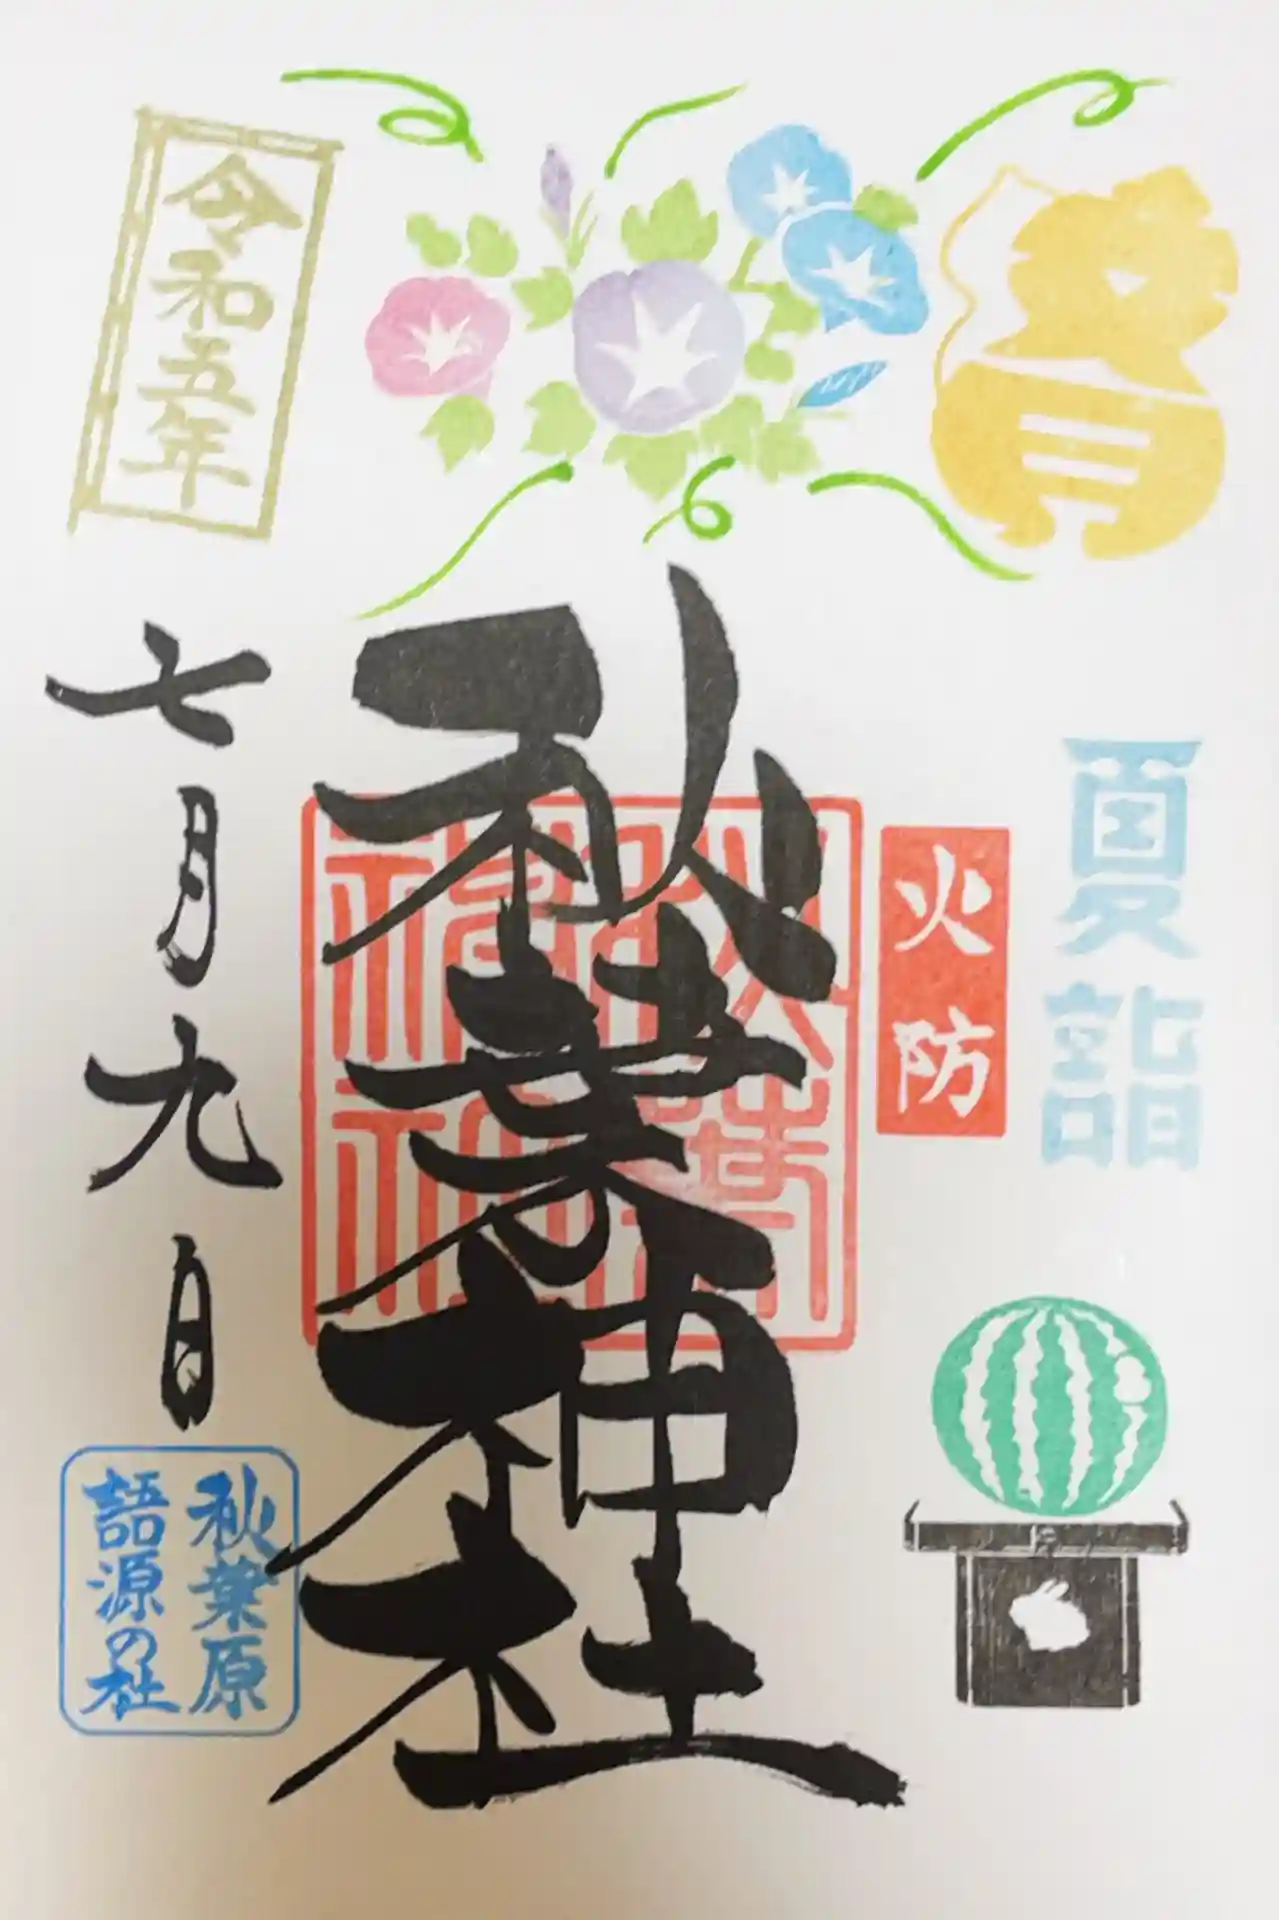 夏詣
火防
秋葉神社
秋葉神社
令和五年
七月九日
秋葉原
語源の社